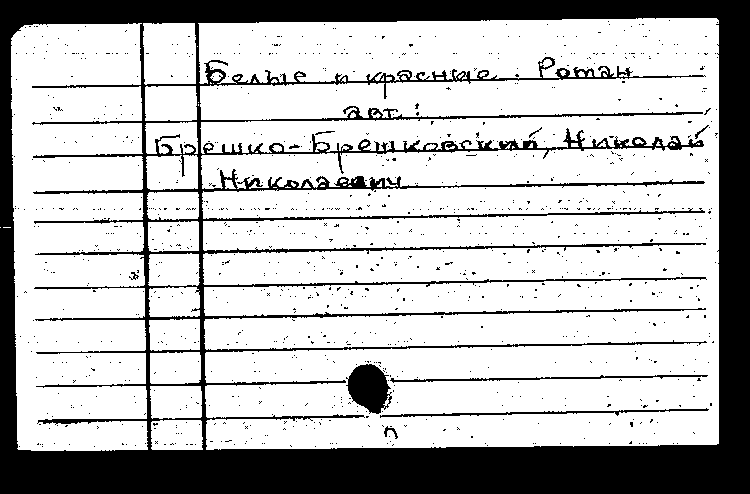 Белые и красные. Роман
авт.:
Брешко-Брешковский, Николай
Николаевич
п